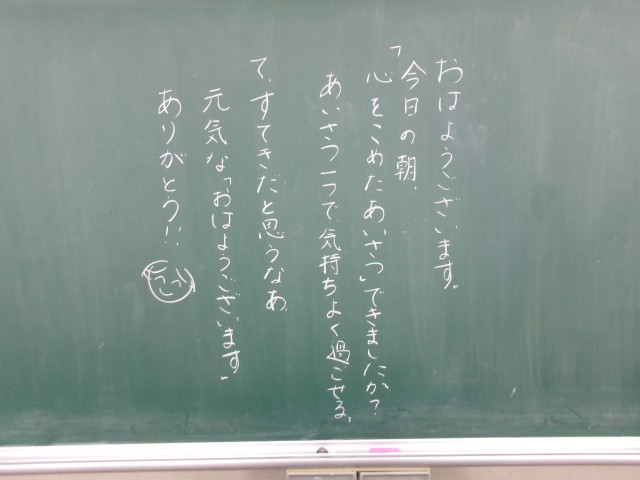 おはようございます。
今日の朝、
「心をこめたあいさつ」できましたか?
あいさつ一つで気持ちよく過ごせる、
て、すてきだと思うなあ。
元気な「おはようございます」
ありがとう!!